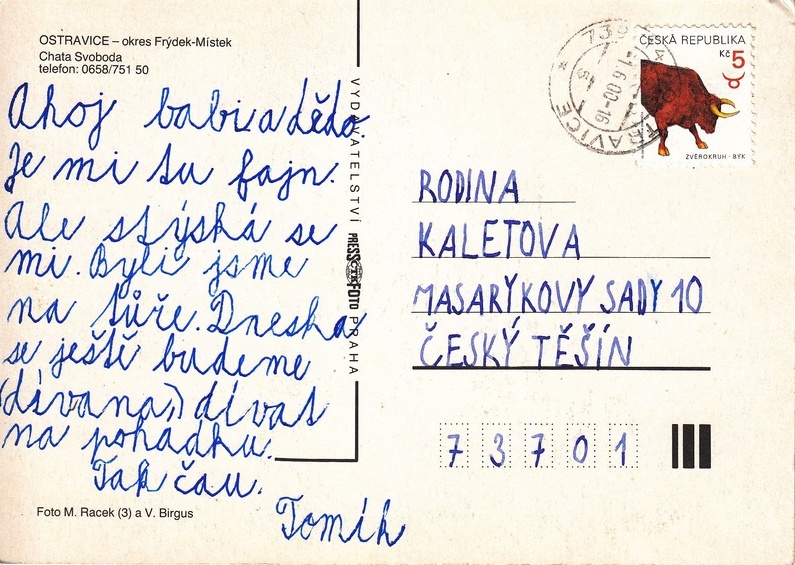 OSTRAVICE – okres Frýdek-Místek
Chata Svoboda
telefon: 0658/751 50
Ahoj babi a dědo.
Je mi tu fajn.
Ale stýská se
mi. Byli jsme
na túře. Dneska
se ještě budeme
(dívana,) dívat
na pohádku.
Tak čau.
Tomík
Foto M. Racek (3) a V. Birgus
VYDAVATELSTVÍ PRESSFOTO PRAHA
ČTK
ČESKÁ REPUBLIKA
Kč 5
ZVĚROKRUH - BÝK
-1.6.00-16
TRAVICE
RODINA
KALETOVA
MASARÝKOVY SADY 10
ČESKÝ TĚŠÍN
73701